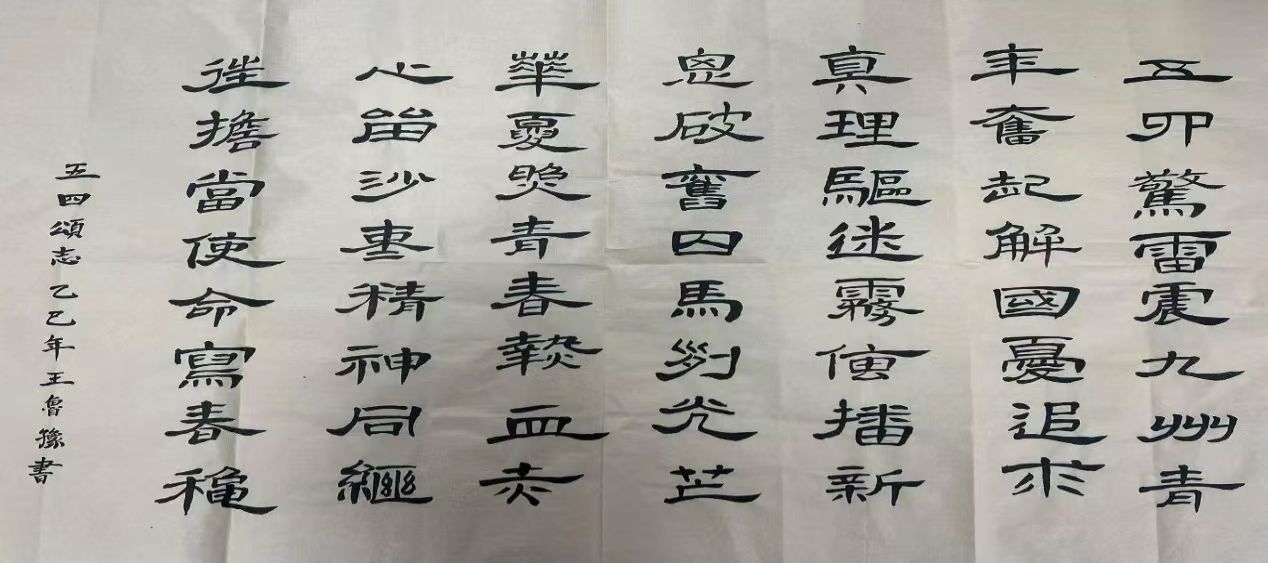 五四驚雷震九州青
年奮起解國憂追求
真理驅迷霧傳播新
思破舊囚馬列光芒
華夏照青春熱血赤
心留沙棗精神同繼
往擔當使命寫春秋
五四頌志 乙巳年王魯豫書